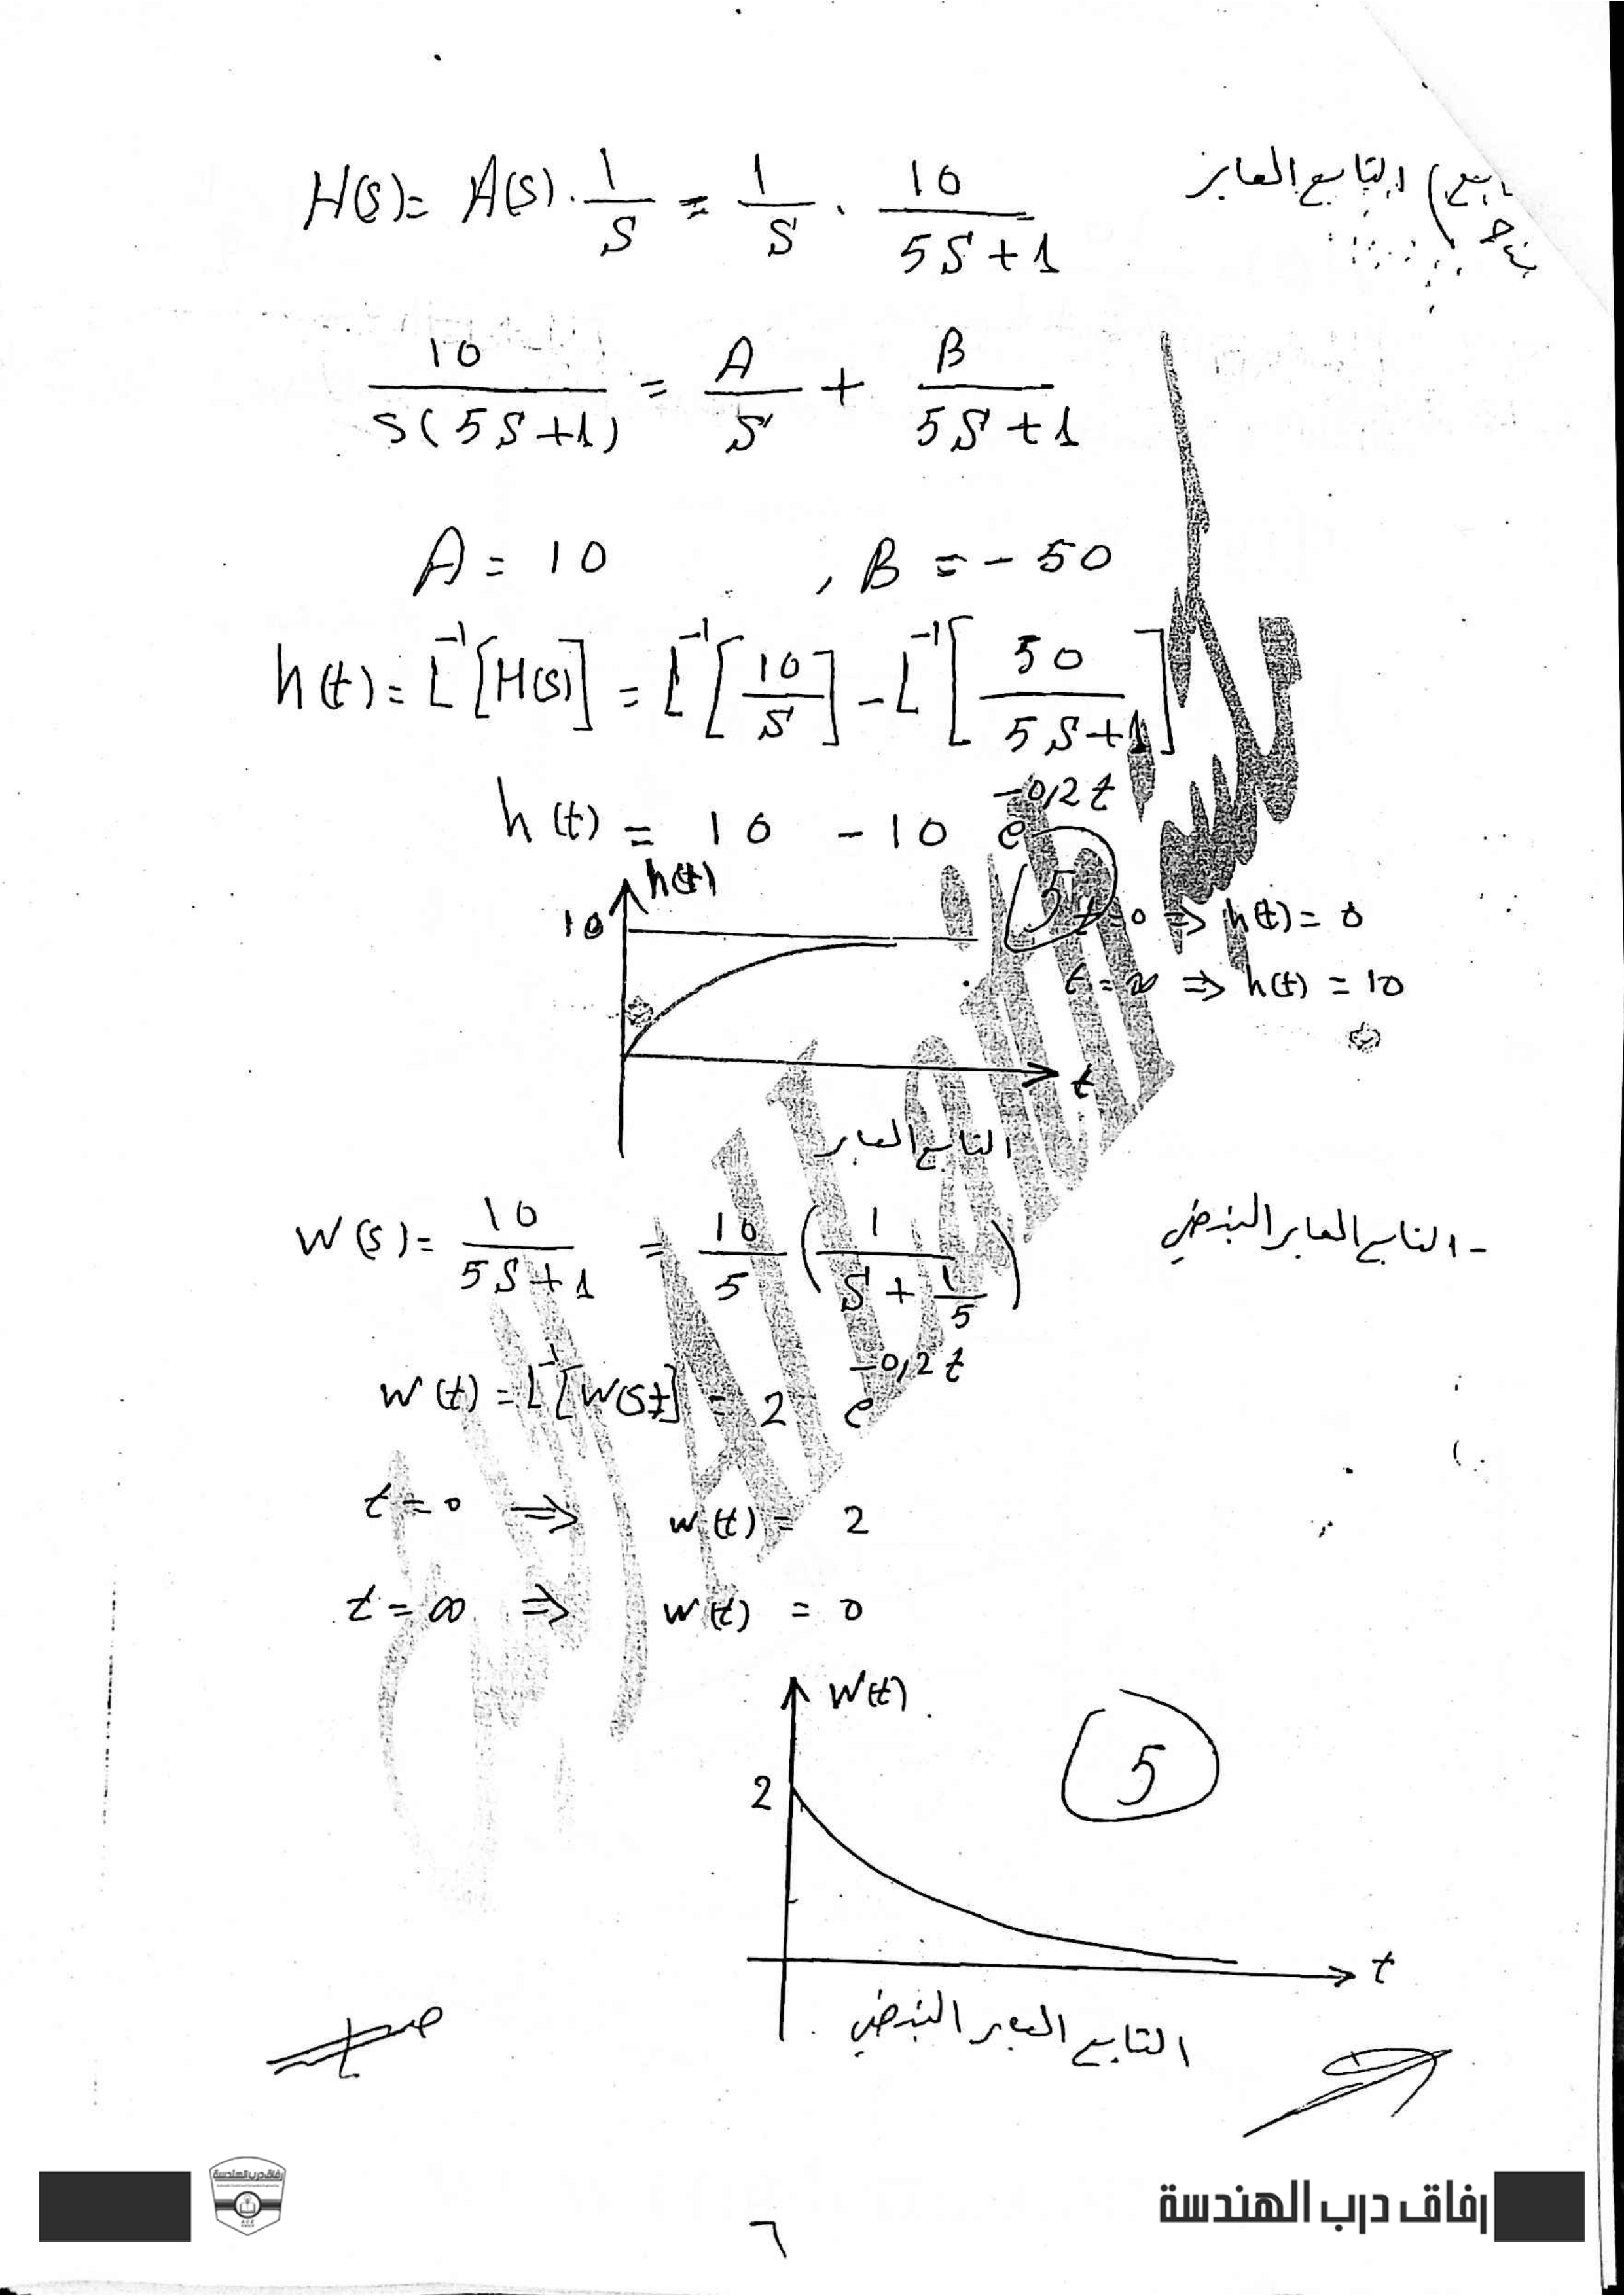 التابع العابر
H(s) = A(s) . 1/S = 1/S . 10/(5S+1)
10/(S(5S+1)) = A/S + B/(5S+1)
A = 10 , B = - 50
h(t) = L⁻¹[H(s)] = L⁻¹[10/S] - L⁻¹[50/(5S+1)]
h(t) = 10 - 10 e^(-0,2t)
5
h(t)
10
t
t = 0 ⇒ h(t) = 0
t = ∞ ⇒ h(t) = 10
التابع العابر
- التابع العابر النبضي
W(s) = 10/(5S+1) = 10/5 (1/(S + 1/5))
w(t) = L⁻¹[W(s)] = 2 e^(-0,2t)
t = 0 ⇒ w(t) = 2
t = ∞ ⇒ w(t) = 0
W(t)
2
t
5
التابع العابر النبضي
رفاق درب الهندسة
٦